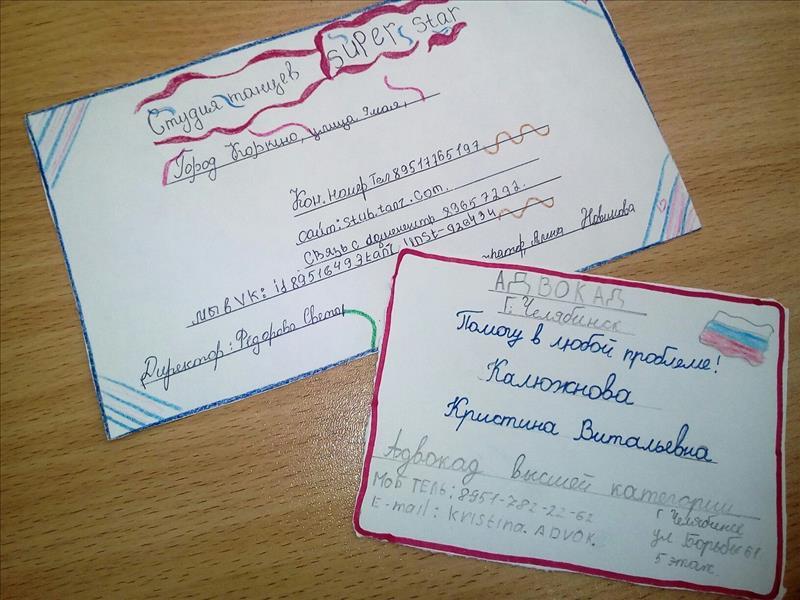 Студия танцев super star
Город Коркино, улица 9мая,
Кон. номер Тел 89517765197
сайт: Stub.tanz.com.
Связь с 89657292.
мы в VK: id 89516493tanz. inst-926434
Алина Новикова
Директор: Федорова Света
АДВОКАД
Г. Челябинск
Помогу в любой проблеме!
Калюжнова
Кристина Витальевна
Адвокад высшей категории
Моб ТЕЛЬ: 8951-782-22-62
E-mail: kristina. ADVOK.
г Челябинск
ул Борьбы 61
5 этаж